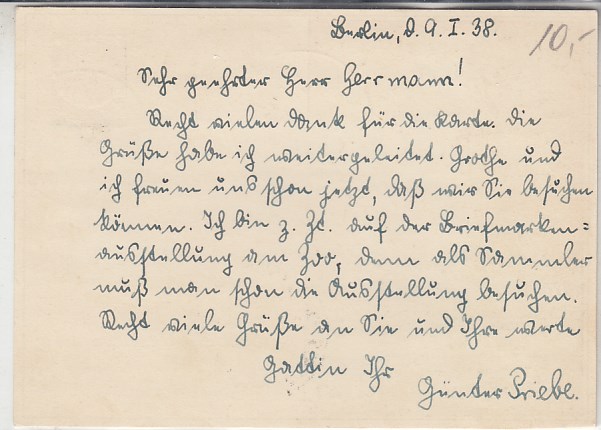 Berlin, d. 9.I.38.
10,-
Sehr geehrter Herr Herrmann!
Recht vielen Dank für die Karte. Die
Grüße habe ich weitergeleitet. Grothe und
ich freuen uns schon jetzt, daß wir Sie besuchen
können. Ich bin z. Zt. auf der Briefmarken=
ausstellung am Zoo, denn als Sammler
muß man schon die Ausstellung besuchen.
Recht viele Grüße an Sie und Ihre werte
Gattin Ihr
Günter Priebe.